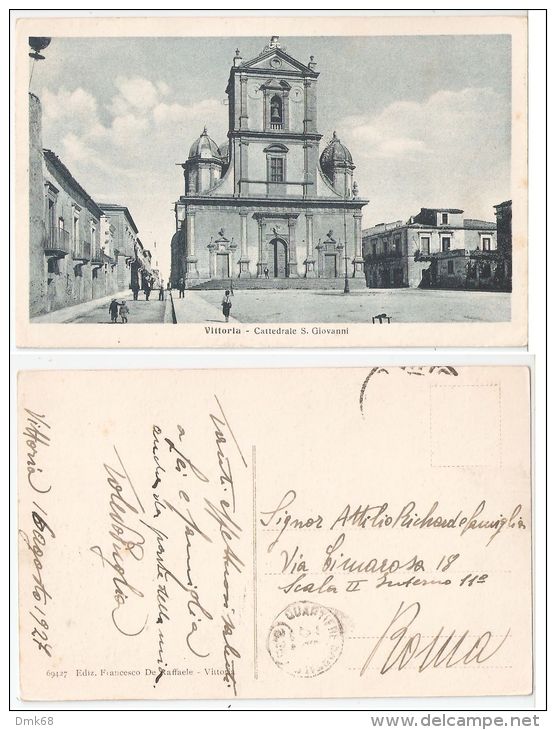 Vittoria - Cattedrale S. Giovanni
Vittoria, 16 Agosto 1927
Tanti affettuosi saluti
a Lei e famiglia
anche da parte della mia.
Signor Attilio Richard e famiglia
Via Cimarosa 18
Scala II Interno 11º
Roma
69427 Ediz. Francesco De Raffaele - Vittoria
Dmk68
www.delcampe.net